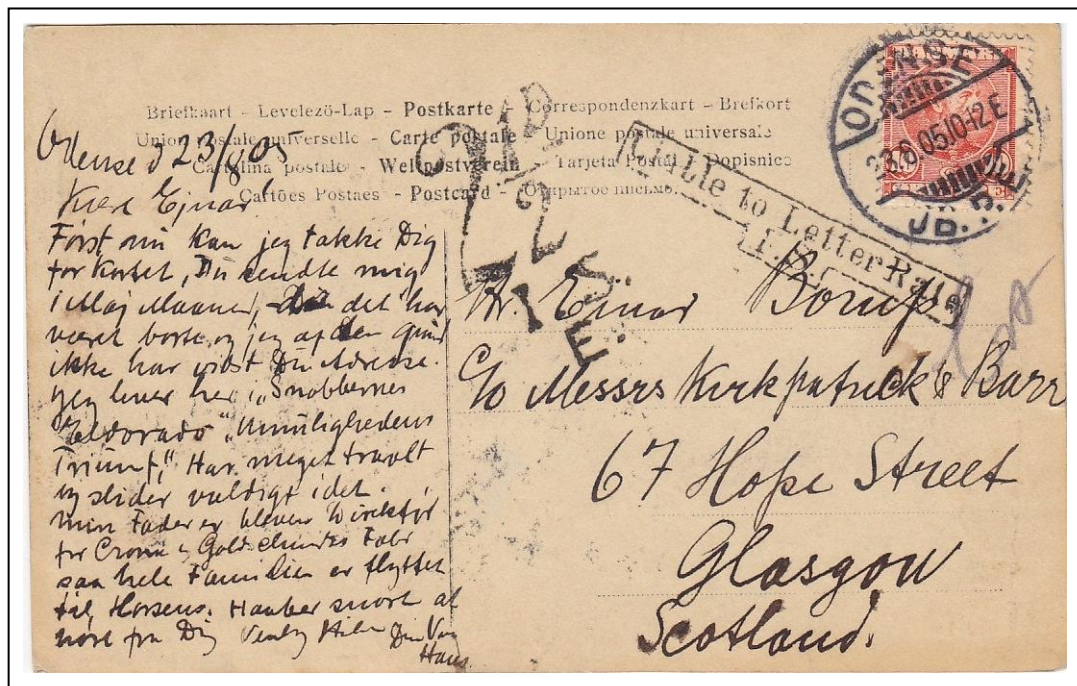 Briefkaart - Levelező-Lap - Postkarte - Correspondenzkart - Brefkort
Union postale universelle - Carte postale - Unione postale universale
Cartolina postale - Weltpostverein - Tarjeta Postal - Dopisnice
Cartões Postaes - Postcard - Открытое письмо.
ODENSE
23.8.05 10-12 E
JB. P.
Liable to Letter Rate
Odense d 23/8 05
Kære Ejnar
Först nu kan jeg takke Dig
for Kortet, Du sendte mig
i Maj Maaned, det har
været borte, og jeg af den grund
ikke har vidst Din Adresse.
Jeg lever her i „Snobbernes
Eldorado" „Umulighedens
Triumf," Har meget travlt
og slider vældigt i det.
Min Fader er bleven Direktør
for Crome & Goldschmidts Fabr
saa hele Familien er flyttet
til Horsens. Haaber snart at
høre fra Dig Venlig Hilsen Din Ven
Hans.
Hr. Ejnar Borup
C/o Messrs Kirkpatrick & Barr
67 Hope Street
Glasgow
Scotland.